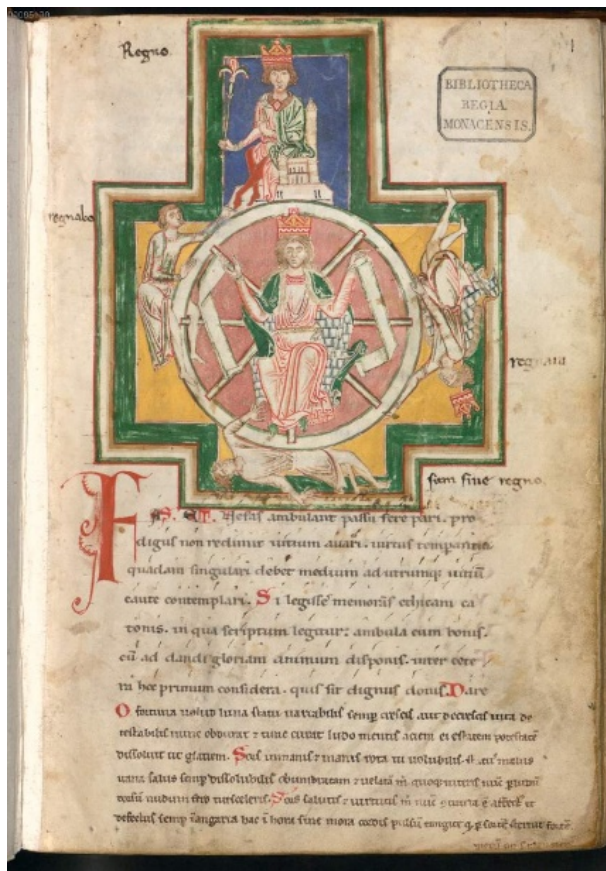 Regno.
1
BIBLIOTHECA
REGIA
MONACENSIS.
regnabo
regnavi
sum sine regno.
FAS. ET. Nefas ambulant passu fere pari. pro
digus non redimit uitium auari. uirtus temperantia
quadam singulari debet medium ad utrumq; uitiū
caute contemplari. Si legisse memoras ethicam ca
tonis. in qua scriptum legitur: ambula cum bonis.
cū ad dandi gloriam animum disponis. inter cete
ra hoc primum considera. quis sit dignus donis. Dare
O fortuna uelud luna statu uariabilis semp crescis aut decrescis uita de
testabilis nunc obdurat & tunc curat ludo mentis aciem egestatem potestatē
dissoluit ut glaciem. Sors inmanis & inanis rota tu uolubilis status malus
uana salus semp dissolubilis obumbratam & uelatā m quoq; niteris nūc p ludum
dorsū nudum fero tui sceleris. Sors salutis & uirtutis m nūc contraria ē affectus
defectus semp īangaria hac ī hora sine mora cordis pulsū tangite